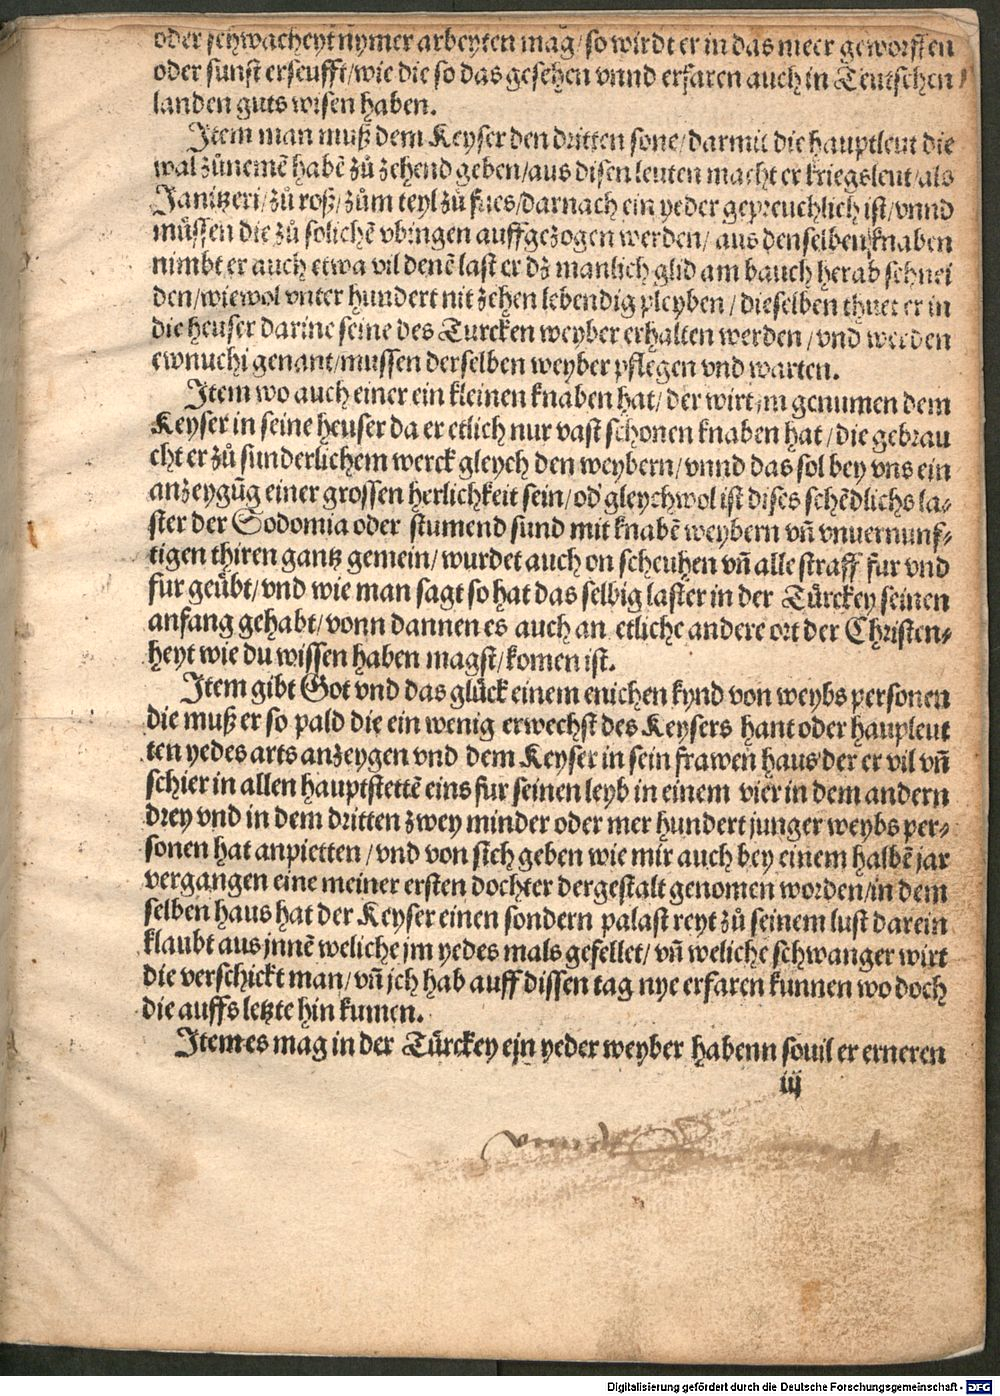 oder schwacheyt nymer arbeyten mag/ so wirdt er in das meer geworffen
oder sunst erseufft/ wie die so das gesehen vnnd erfaren auch in Teutschen
landen guts wisen haben.
Item man muß dem Keyser den dritten sone/ darmit die hauptleut die
wal zůnemē habē zů zehend geben/ aus disen leuten macht er kriegsleut/ als
Janitzeri/ zů roß/ zům teyl zů fues/ darnach ein yeder gepreuchlich ist/ vnnd
müssen die zů solichē vbingen auffgezogen werden/ aus denselben knaben
nimbt er auch etwa vil denē last er dz manlich glid am bauch herab schnei
den/ wiewol vnter hundert nit zehen lebendig pleyben/ dieselben thuet er in
die heuser darine seine des Turcken weyber erhalten werden/ vnd werden
ewnuchi genant/ mussen derselben weyber pflegen vnd warten.
Item wo auch einer ein kleinen knaben hat/ der wirt im genumen dem
Keyser in seine heuser da er etlich nur vast schonen knaben hat/ die gebrau
cht er zů sunderlichem werck gleych den weybern/ vnnd das sol bey vns ein
anzeygūg einer grossen herlichkeit sein/ od' gleychwol ist dises schēdlichs la⸗
ster der Sodomia oder stumend sund mit knabē weybern vn̄ vnuernunf⸗
tigen thiren gantz gemein/ wurdet auch on scheuhen vn̄ alle straff fur vnd
fur geübt/ vnd wie man sagt so hat das selbig laster in der Türckey seinen
anfang gehabt/ vonn dannen es auch an etliche andere ort der Christen⸗
heyt wie du wissen haben magst/ komen ist.
Item gibt Got vnd das glück einem enichen kynd von weybs personen
die muß er so pald die ein wenig erwechst des Keysers hant oder haupleut
ten yedes arts anzeygen vnd dem Keyser in sein frawen haus der er vil vn̄
schier in allen hauptstettē eins fur seinen leyb in einem vier in dem andern
drey vnd in dem dritten zwey minder oder mer hundert junger weybs per⸗
sonen hat anpietten/ vnd von sich geben wie mir auch bey einem halbē jar
vergangen eine meiner ersten dochter dergestalt genomen worden/ in dem
selben haus hat der Keyser einen sondern palast reyt zů seinem lust darein
klaubt aus jnnē weliche jm yedes mals gefellet/ vn̄ weliche schwanger wirt
die verschickt man/ vn̄ jch hab auff dissen tag nye erfaren kunnen wo doch
die auffs letzte hin kumen.
Item es mag in der Türckey ejn yeder weyber habenn souil er erneren
iij
Digitalisierung gefördert durch die Deutsche Forschungsgemeinschaft - DFG